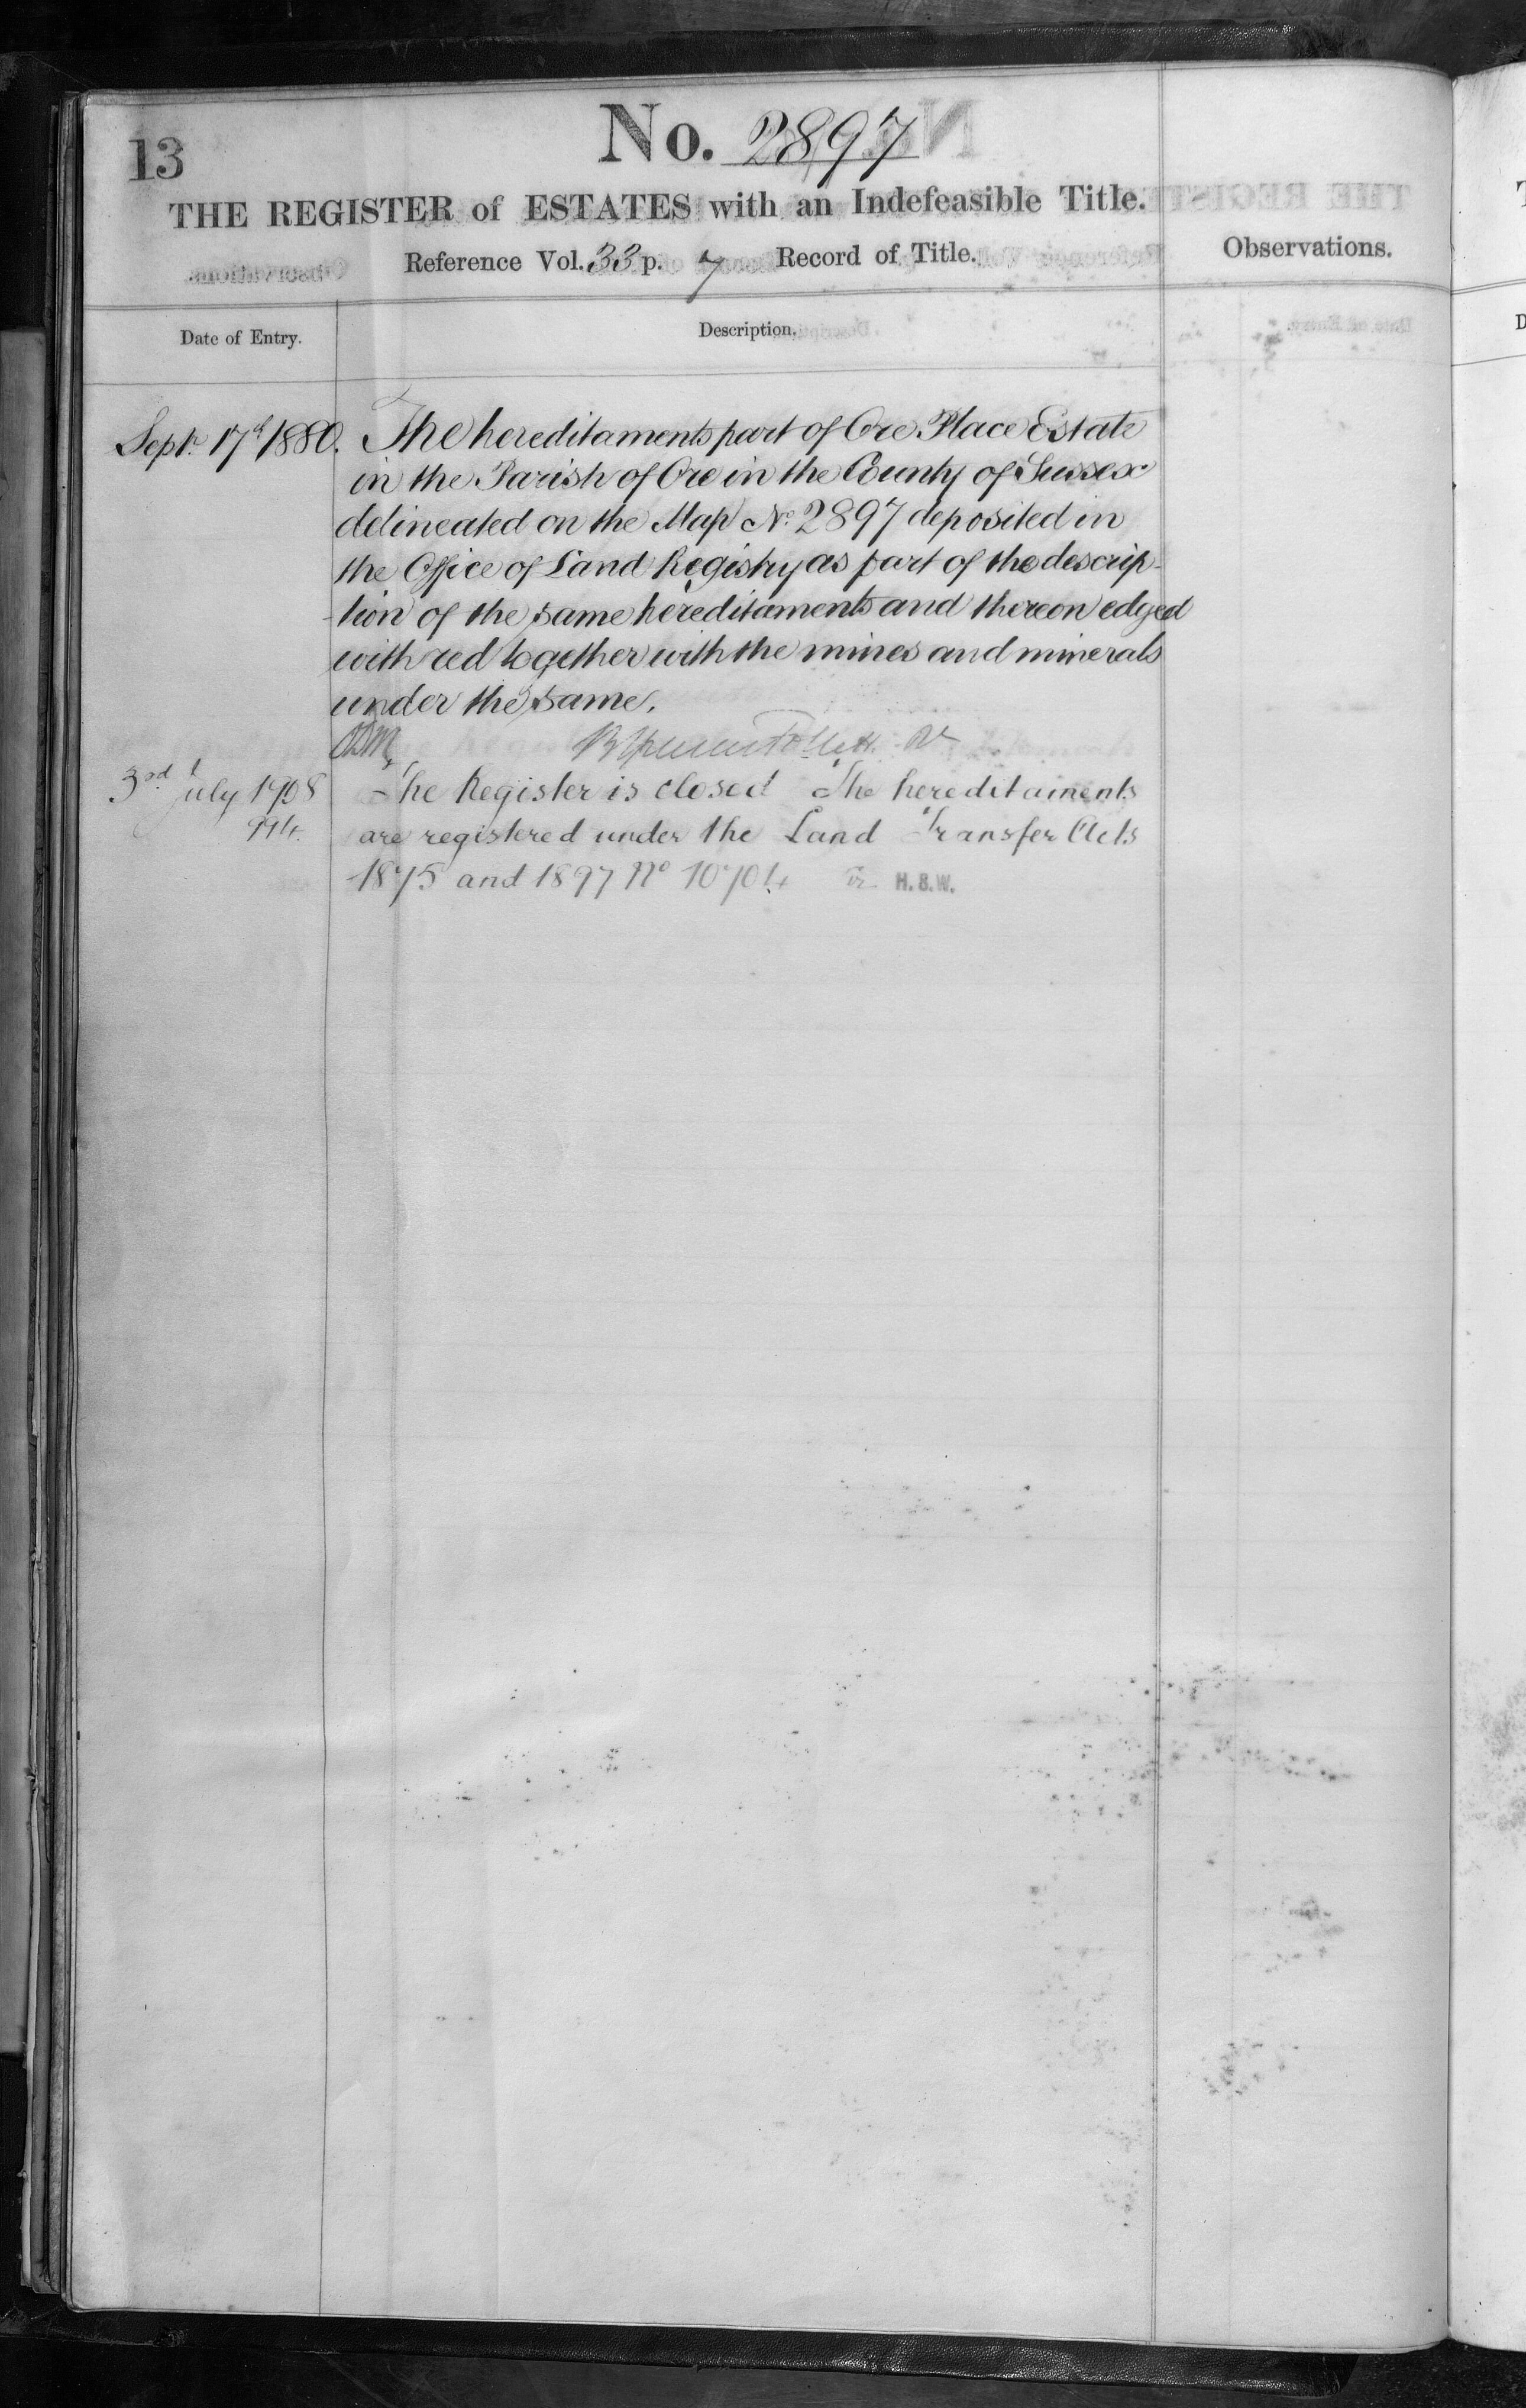 13
No. 2897
THE REGISTER of ESTATES with an Indefeasible Title.
Reference Vol. 33 p. 7 Record of Title.
Observations.
Date of Entry.
Description.
Sept. 17th 1880.
The hereditaments part of Ore Place Estate
in the Parish of Ore in the County of Sussex
delineated on the Map No. 2897 deposited in
the Office of Land Registry as part of the descrip-
-tion of the same hereditaments and thereon edged
with red together with the mines and minerals
under the same.
3rd July 1908
The Register is closed The hereditaments
are registered under the Land Transfer Acts
1875 and 1897 No 10704 H.S.W.